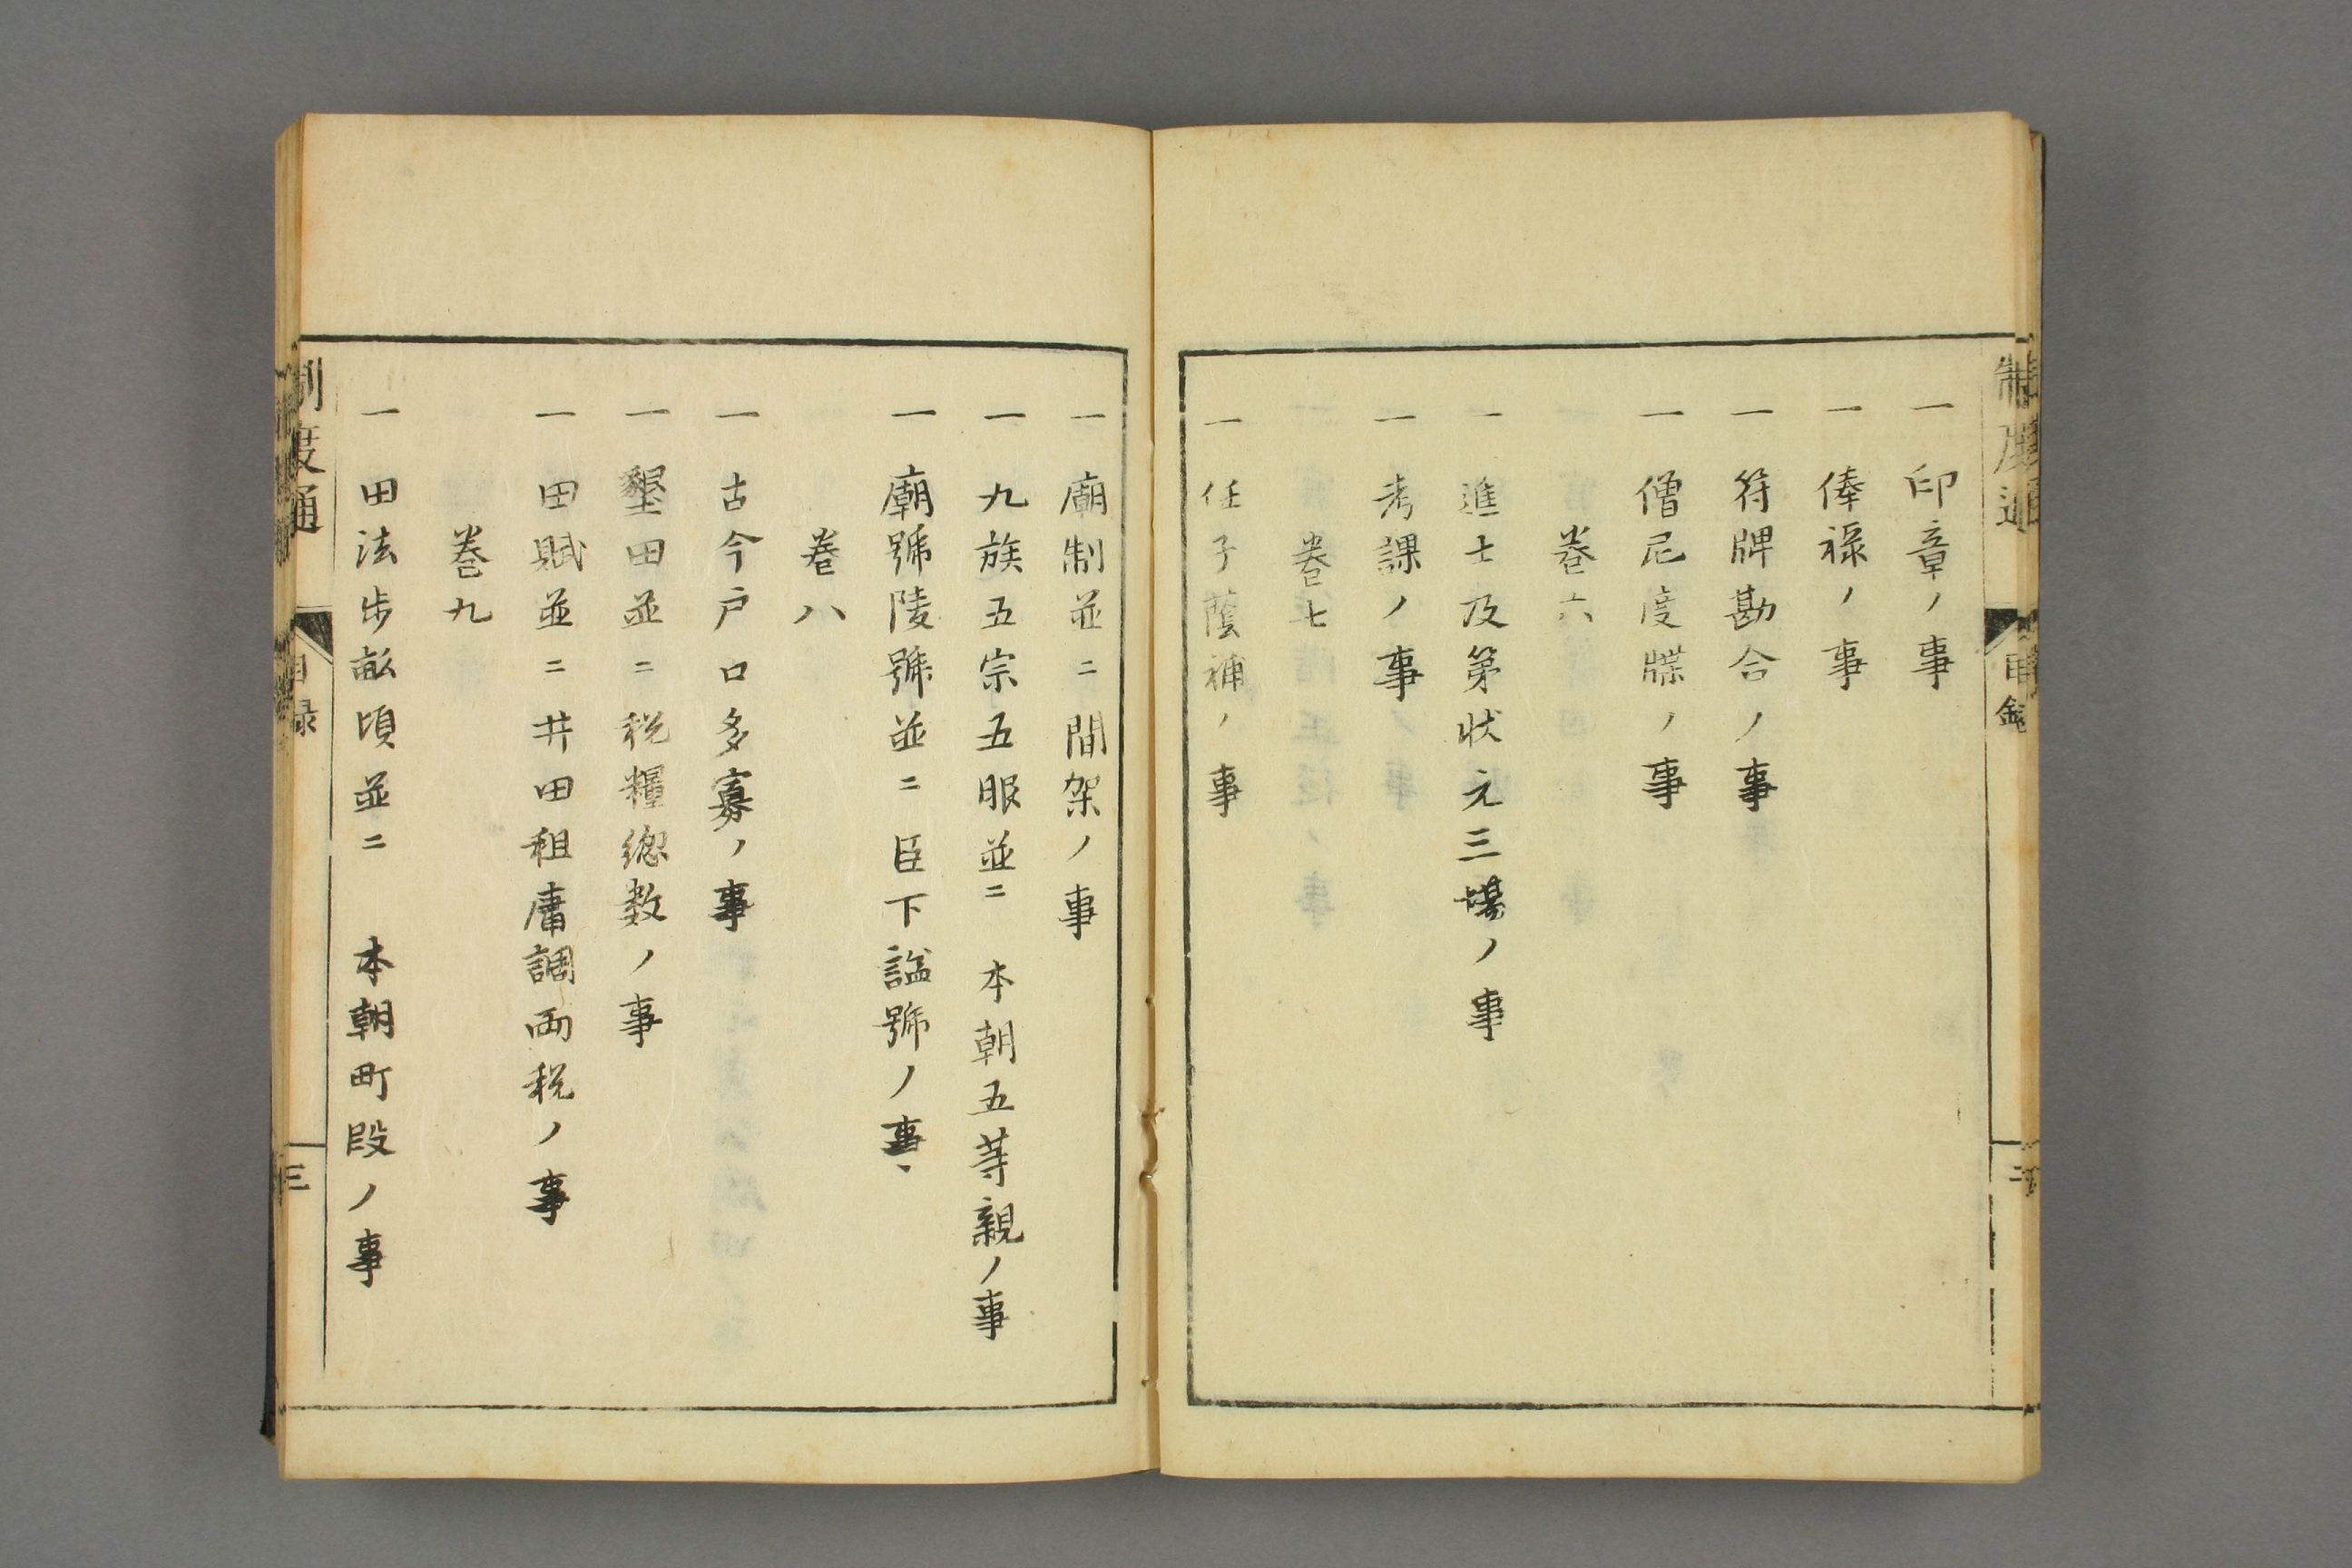 一 印章ノ事
一 俸禄ノ事
一 符牌勘合ノ事
一 僧尼度牒ノ事
巻六
一 進士及第状元三場ノ事
一 考課ノ事
巻七
一 任子蔭補ノ事
一 廟制並ニ間架ノ事
一 九族五宗五服並ニ 本朝五等親ノ事
一 廟號陵號並ニ臣下謚號ノ事
巻八
一 古今戸口多寡ノ事
一 墾田並ニ税糧總数ノ事
一 田賦並ニ井田租庸調両税ノ事
巻九
一 田法歩畝頃並ニ 本朝町段ノ事
制度通
目録
三